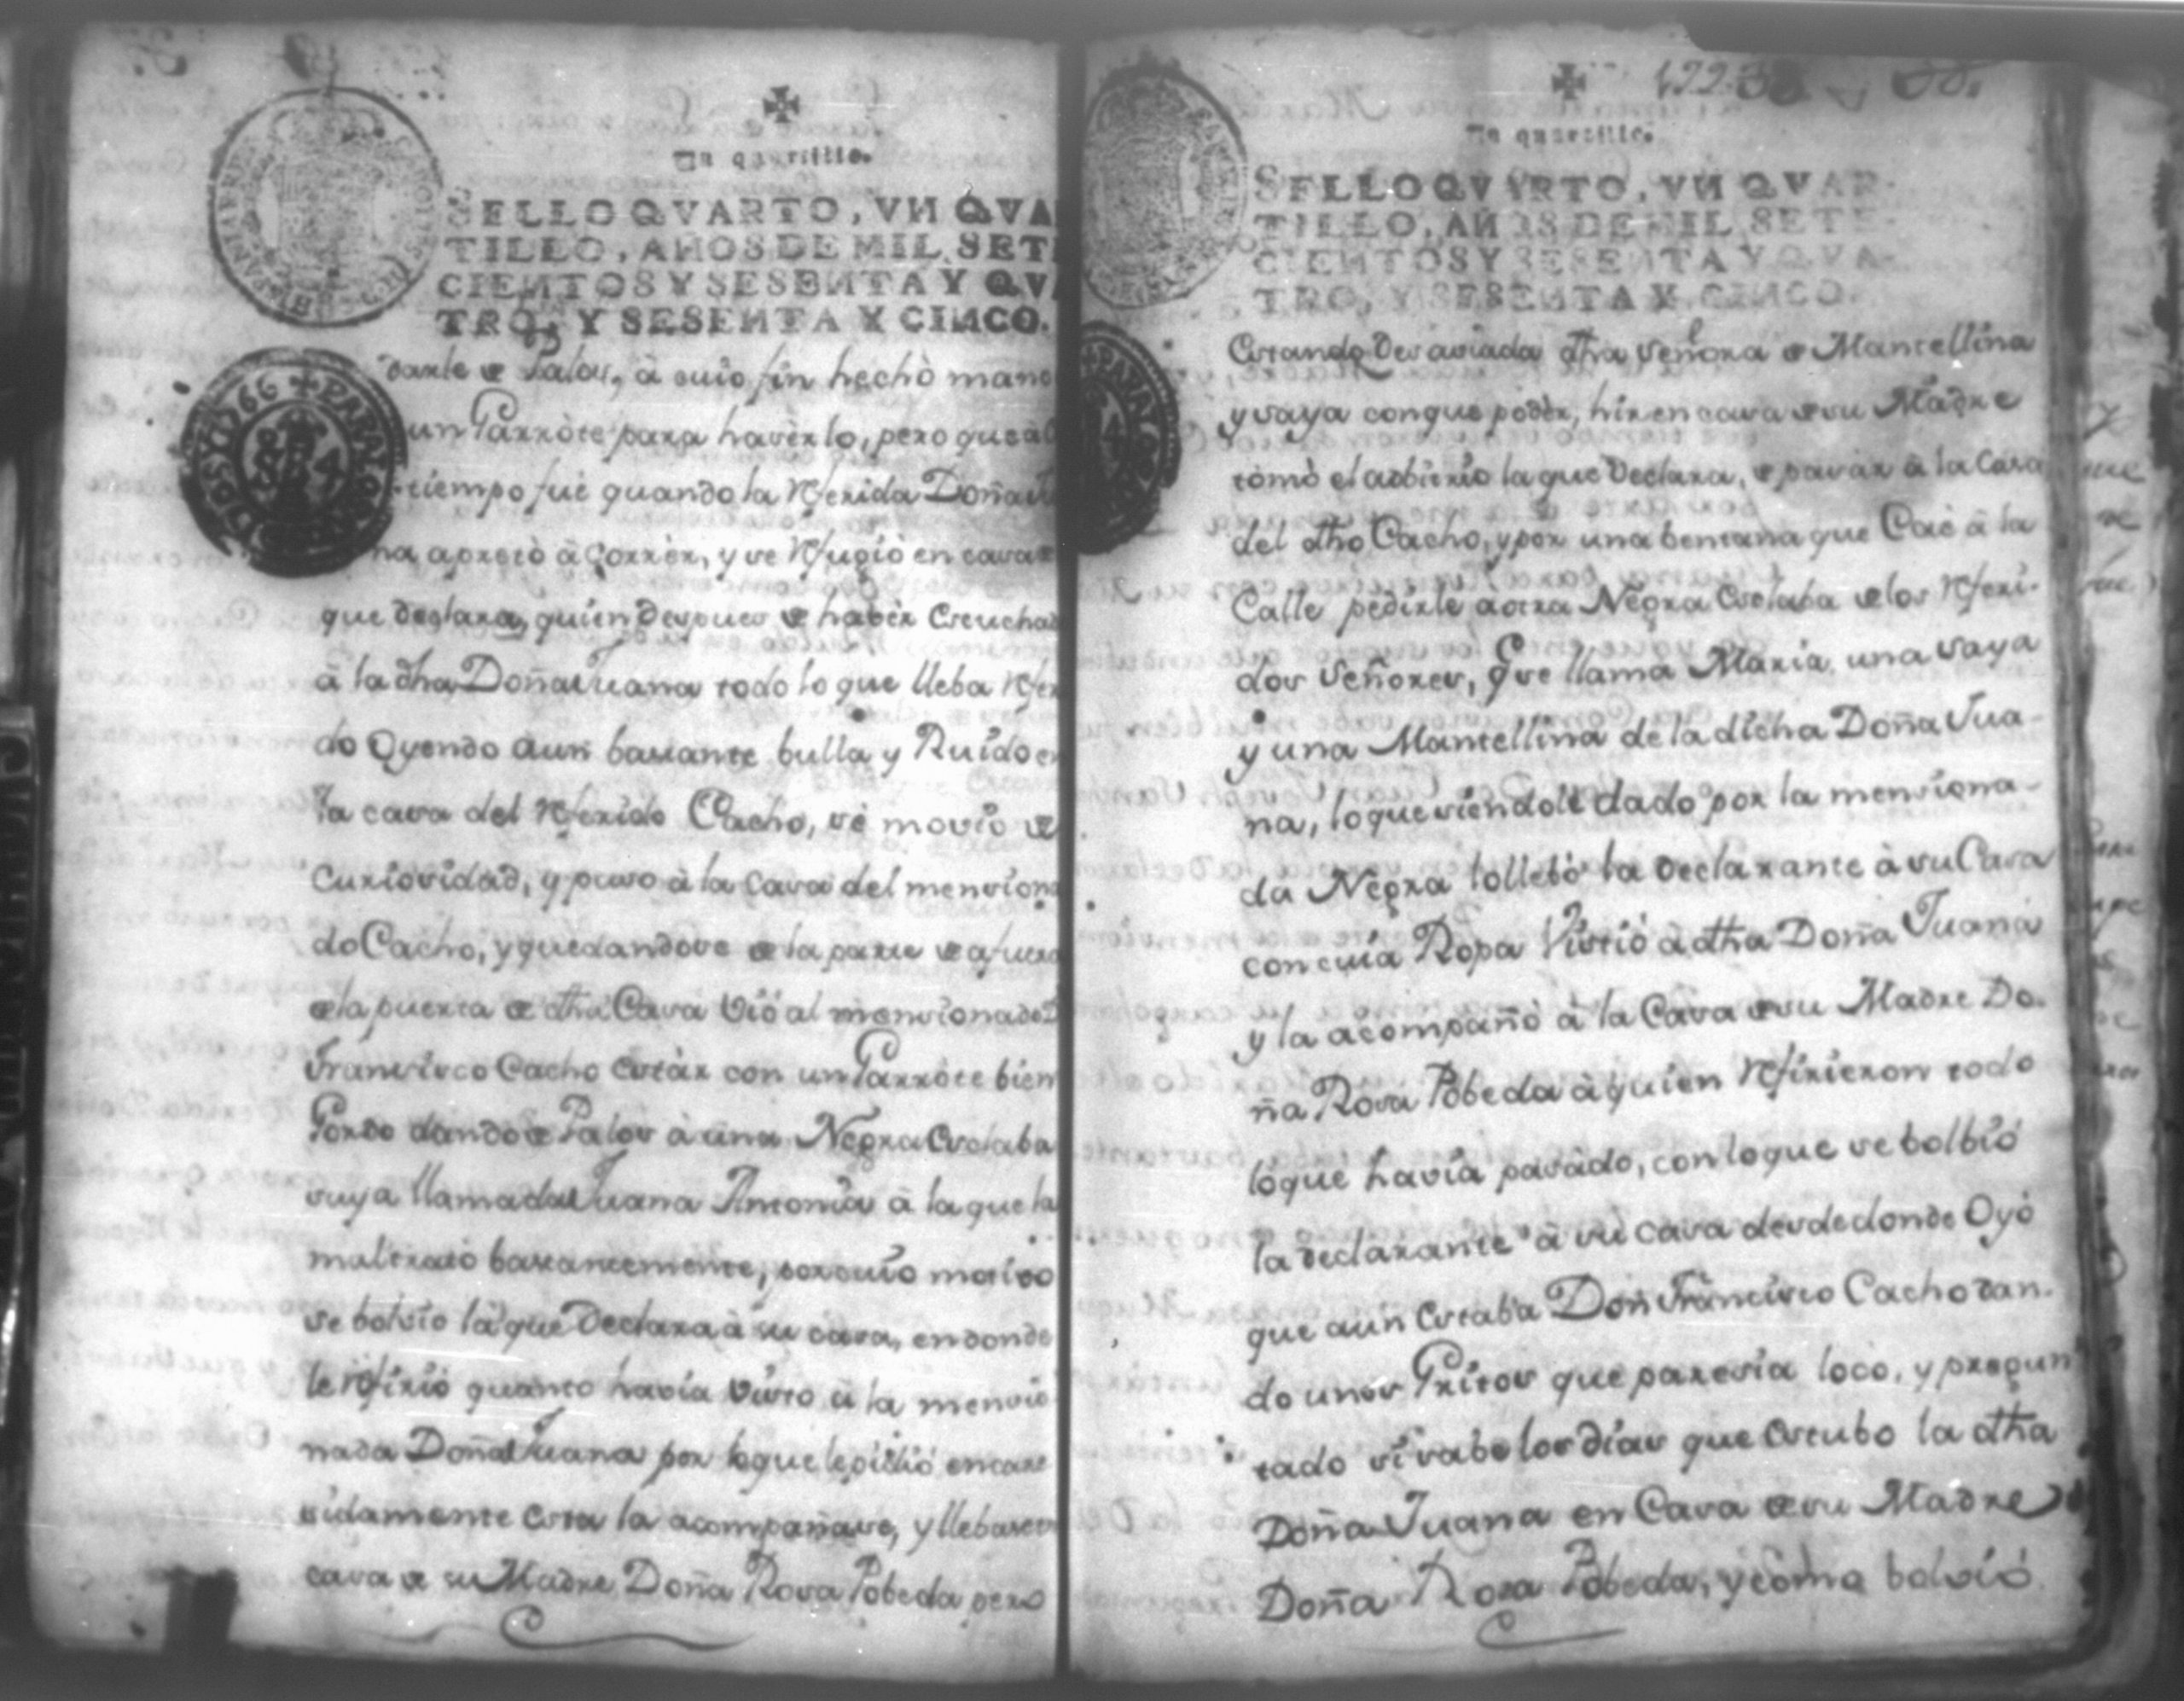 Un quartillo.
SELLO QVARTO, VN QVA
TILLO, AÑOS DE MIL SET
CIENTOS Y SESENTA Y QV
TRO, Y SESENTA Y CINCO.
darle de Palos, à cuio fin hechò mano
un Garròte para havèrlo, pero que al
tiempo fuè quando la Referida Doña Ju
na apretò à Corrèr, y se Refugiò en casa
que declara, quien despues de habèr Escuchad
à la dha Doña Juana todo lo que lleba Refer
do Oyendo aun bastante bulla y Ruido en
la casa del Referido Cacho, se moviò de
Curiosidad, y pasò à la Casa del mensiona
do Cacho, y quedandose de la parte de afuera
de la puerta de dha Casa Viò al mensionado
Fransisco Cacho Estàr con un Garròte bien
Gordo dando de Palos à una Negra Esclaba
suya llamada Juana Antonia à la que la
maltratò bastantemente, por cuio motivo
se bolvio la que Declara à su casa, en donde
le Refiriò quanto havia Visto à la mensio
nada Doña Juana por lo que le pidiò encare
sidamente Esta la acompañase, y llebase
casa de su Madre Doña Rosa Pobeda pero
1766
Un quartillo.
SELLO QVARTO, VN QVAR
TILLO, AÑOS DE MIL SETE
CIENTOS Y SESENTA Y QVA
TRO, Y SESENTA Y CINCO.
Estando Desaviada dha Señora de Mantellina
y saya conque podèr, hir en casa de su Madre
tomò el adbitrio la que Declara, de pasàr à la Casa
del dho Cacho, y por una bentana que Caè à la
Calle pedirle à otra Negra Esclaba de los Referi-
dos Señores, que se llama Maria una saya
y una Mantellina de la dicha Doña Jua-
na, lo que siendole dado por la mensiona-
da Negra lo llebò la Declarante à su Casa
con cuia Ropa Vistiò à dha Doña Juana
y la acompañò à la Casa de su Madre Do-
ña Rosa Pobeda à quien Refirieron todo
lo que havia pasàdo, con lo que se bolbiò
la declarante à su casa desde donde Oyò
que aun Estaba Don Fransisco Cacho dan-
do unos Gritos que paresia loco, y pregun
tado si sabe los dias que Estubo la dha
Doña Juana en Casa de su Madre
Doña Rosa Pobeda, y como bolviò